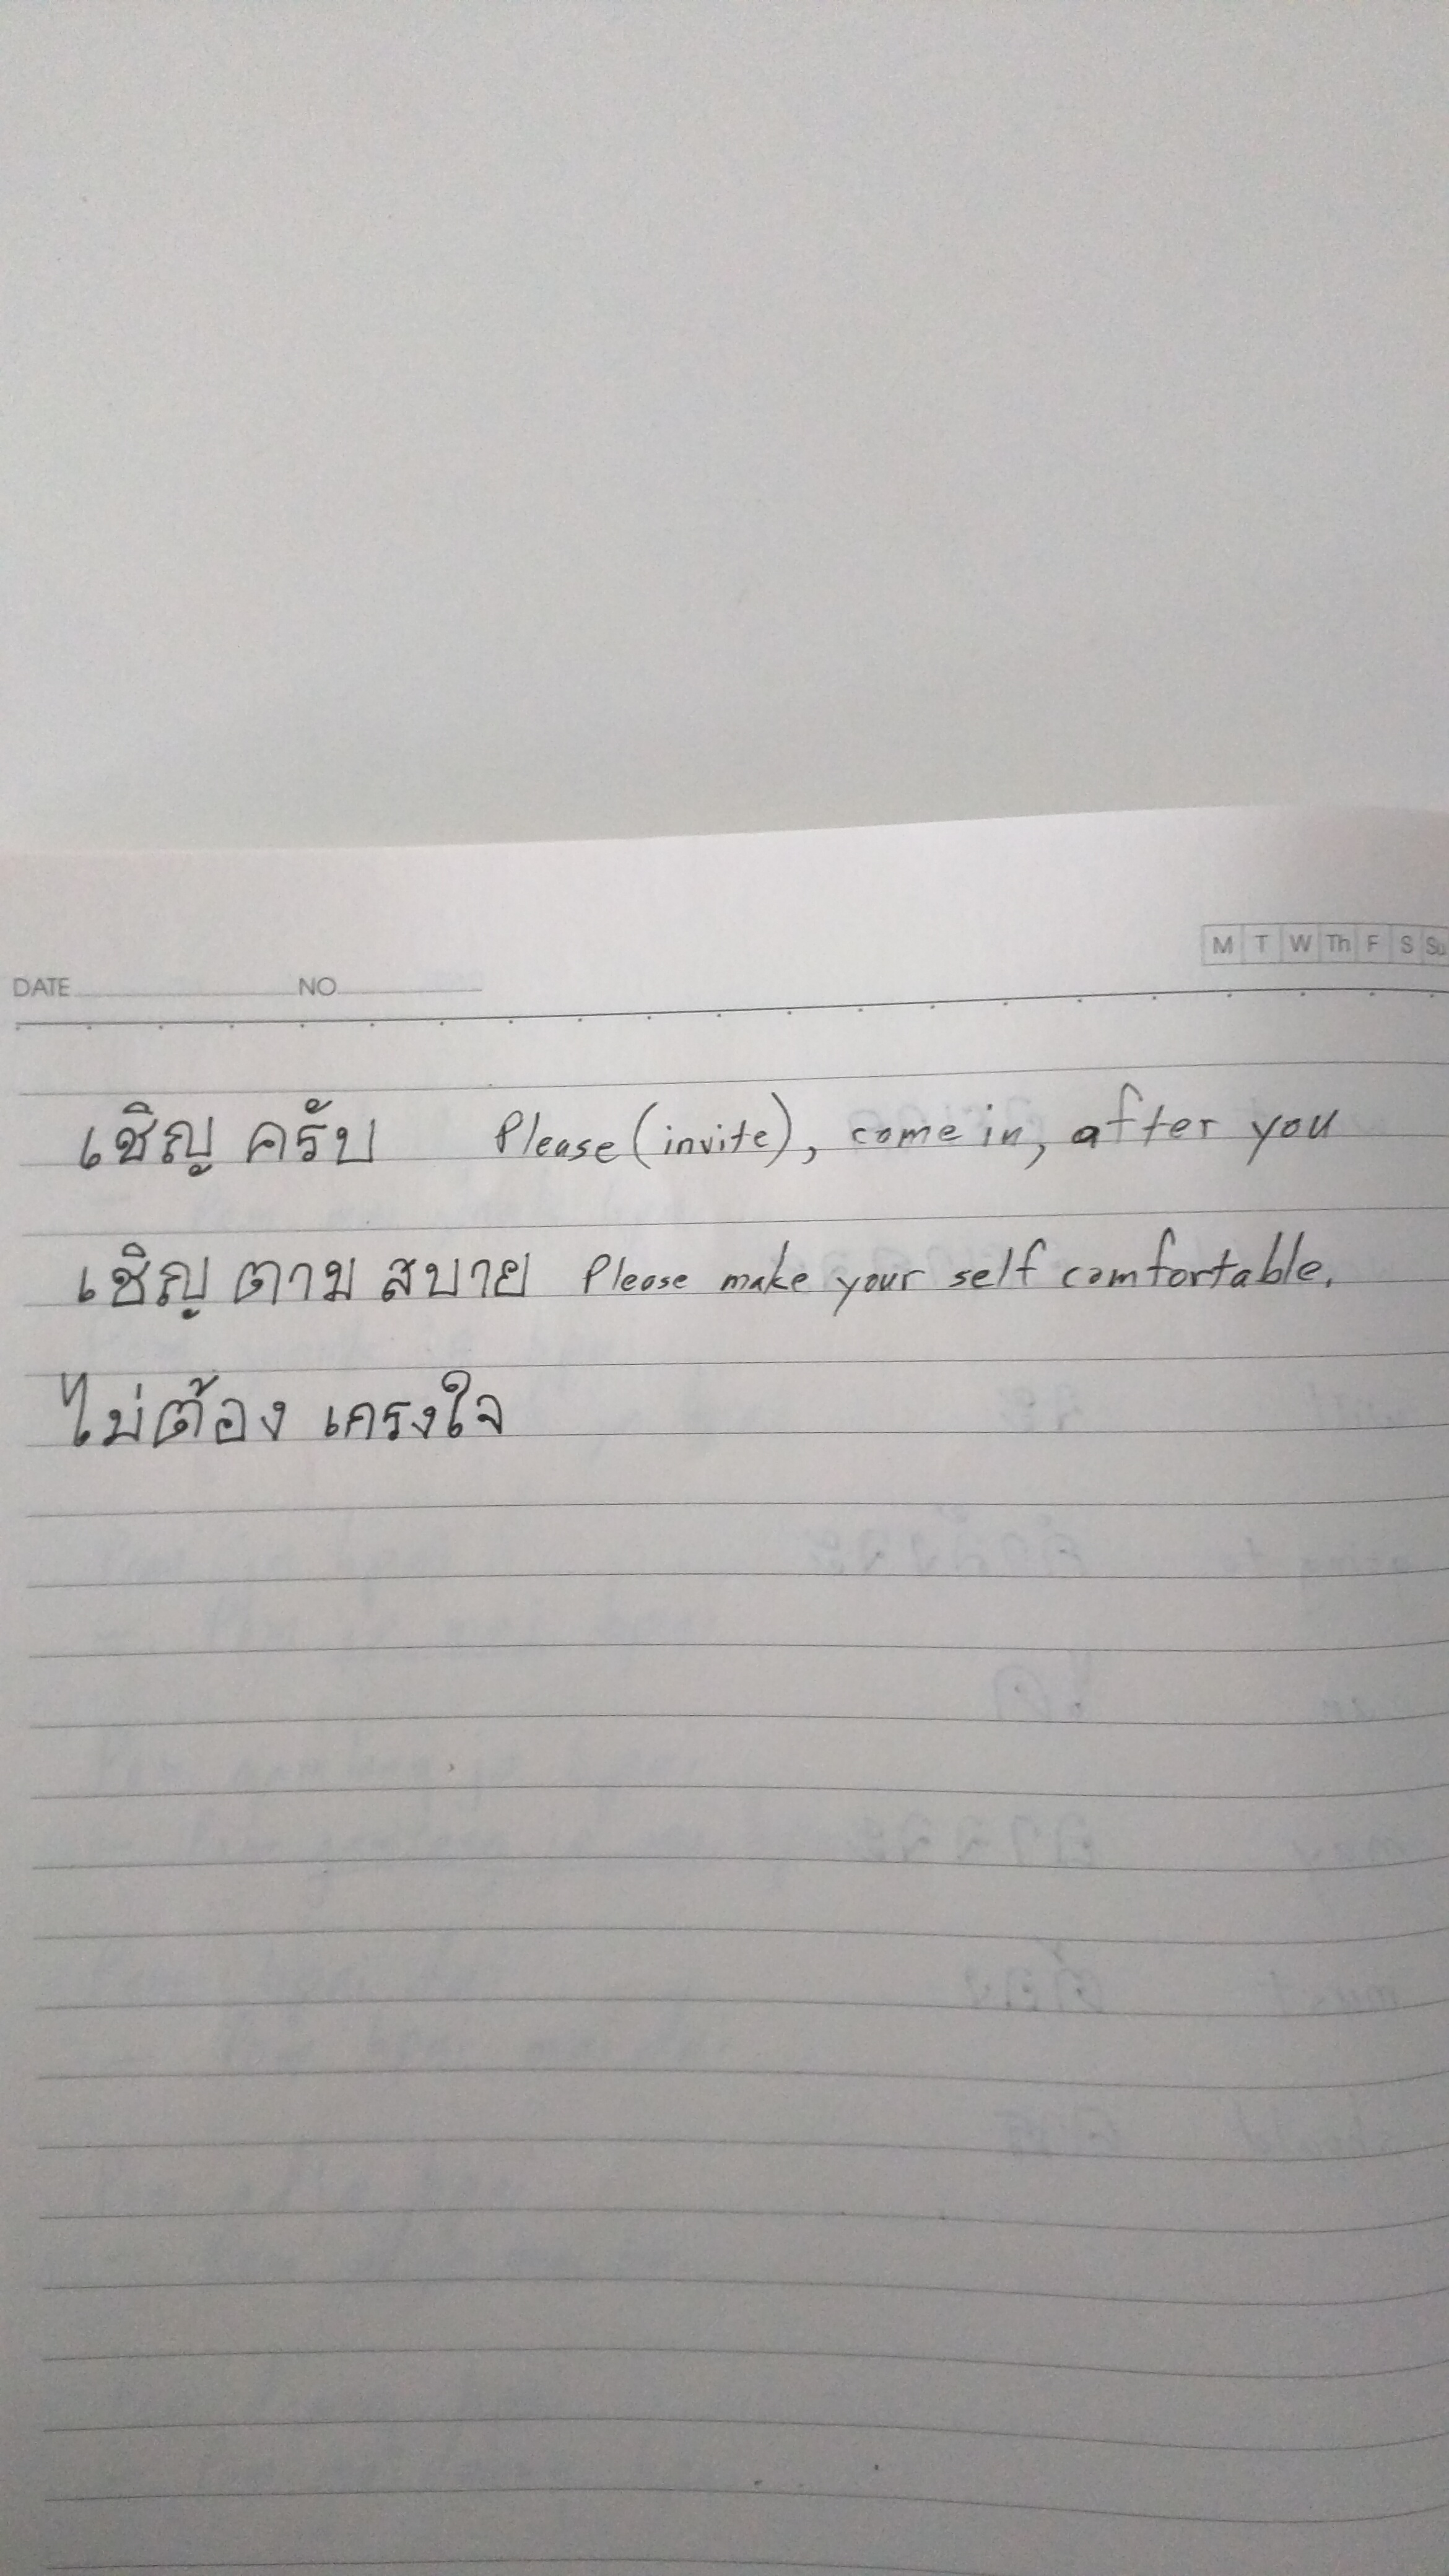 M T W Th F S Su
DATE NO
เชิญ ครับ Please (invite), come in, after you
เชิญ ตาม สบาย Please make your self comfortable.
ไม่ต้อง เกรงใจ